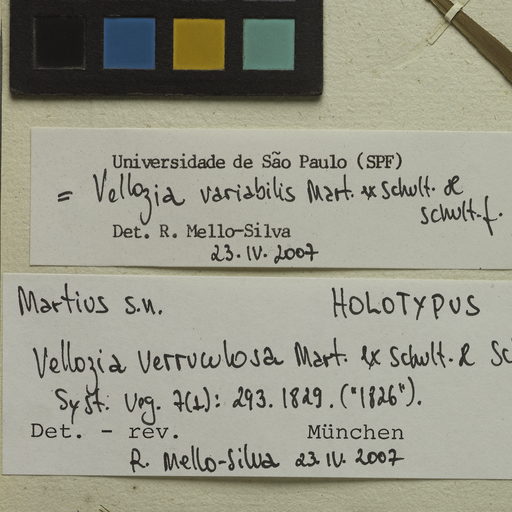 Universidade de São Paulo (SPF)
= Vellozia variabilis Mart. ex Schult. &
Schult. f.
Det. R. Mello-Silva
23.IV.2007
Martius s.n. HOLOTYPUS
Vellozia verruculosa Mart. ex Schult. & Sc
Syst. Veg. 7(1): 293. 1829. ("1826").
Det. - rev. München
R. Mello-Silva 23.IV.2007